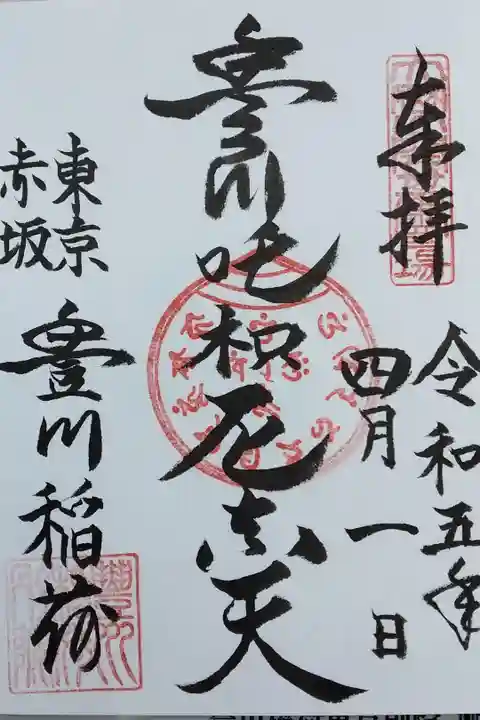 奉拝
令和五年
四月一日
豊川吒枳尼真天
東京
赤坂
豊川稲荷